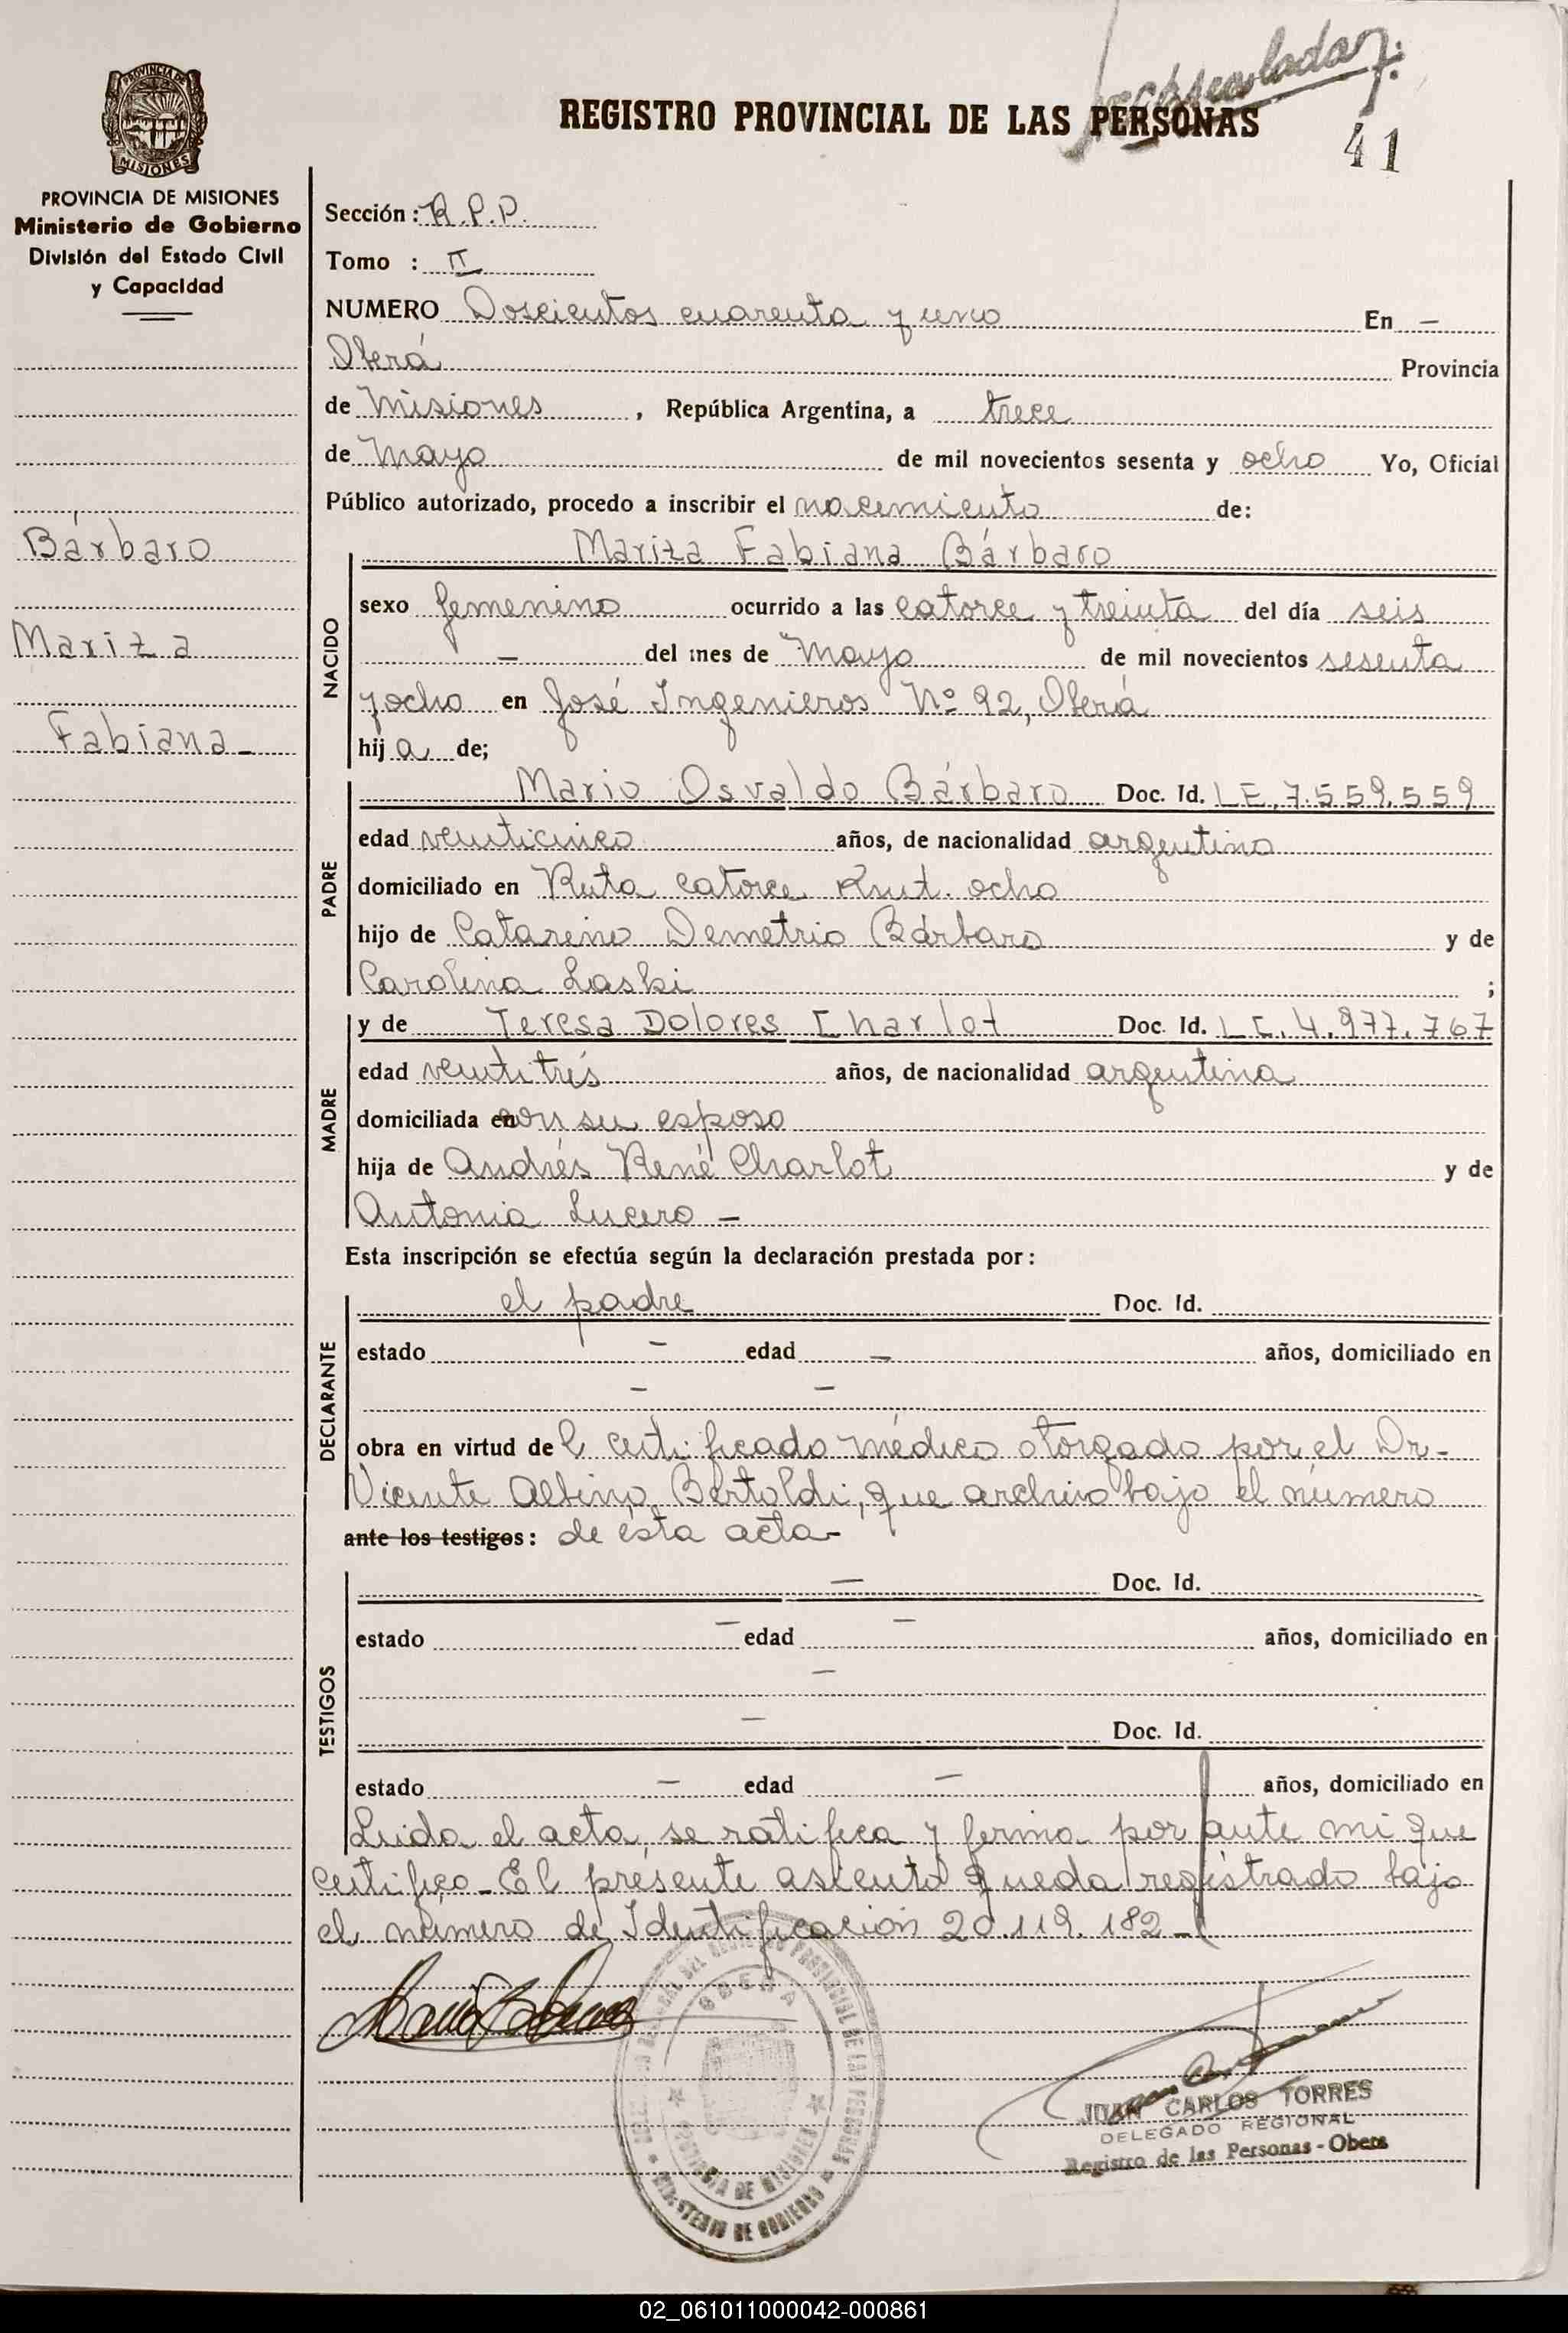 REGISTRO PROVINCIAL DE LAS PERSONAS
41
PROVINCIA DE
MISIONES
PROVINCIA DE MISIONES
Ministerio de Gobierno
División del Estado Civil
y Capacidad
Bárbaro
Mariza
Fabiana -
Sección : R.P.P.
Tomo : II
NUMERO Doscientos cuarenta y uno En -
Oberá Provincia
de Misiones , República Argentina, a trece
de Mayo de mil novecientos sesenta y ocho Yo, Oficial
Público autorizado, procedo a inscribir el nacimiento de:
NACIDO
Mariza Fabiana Bárbaro
sexo femenino ocurrido a las catorce y treinta del día seis
- del mes de Mayo de mil novecientos sesenta
y ocho en José Ingenieros Nº 92, Oberá
hija de;
PADRE
Mario Osvaldo Bárbaro Doc. Id. LE. 7.559.559
edad veinticinco años, de nacionalidad argentino
domiciliado en Ruta catorce Kmt. ocho
hijo de Catareno Demetrio Bárbaro y de
Carolina Laski ;
MADRE
y de Teresa Dolores Charlot Doc. Id. LC. 4.977.767
edad veintitrés años, de nacionalidad argentina
domiciliada con su esposo
hija de Andrés René Charlot y de
Antonia Lucero -
Esta inscripción se efectúa según la declaración prestada por:
DECLARANTE
el padre Doc. Id.
estado - edad - años, domiciliado en
- -
obra en virtud del certificado médico otorgado por el Dr-
Vicente Albino Bertoldi, que archivo bajo el número
ante los testigos: de ésta acta-
TESTIGOS
- Doc. Id.
estado - edad - años, domiciliado en
-
- Doc. Id.
estado - edad - años, domiciliado en
Leida el acta, se ratifica y firma por ante mi que
certifico - El presente asiento queda registrado bajo
el número de Identificación 20.119.182 -
OBERA
PROVINCIA DE MISIONES
MINISTERIO DE GOBIERNO
JUAN CARLOS TORRES
DELEGADO REGIONAL
Registro de las Personas - Obera
02_061011000042-000861